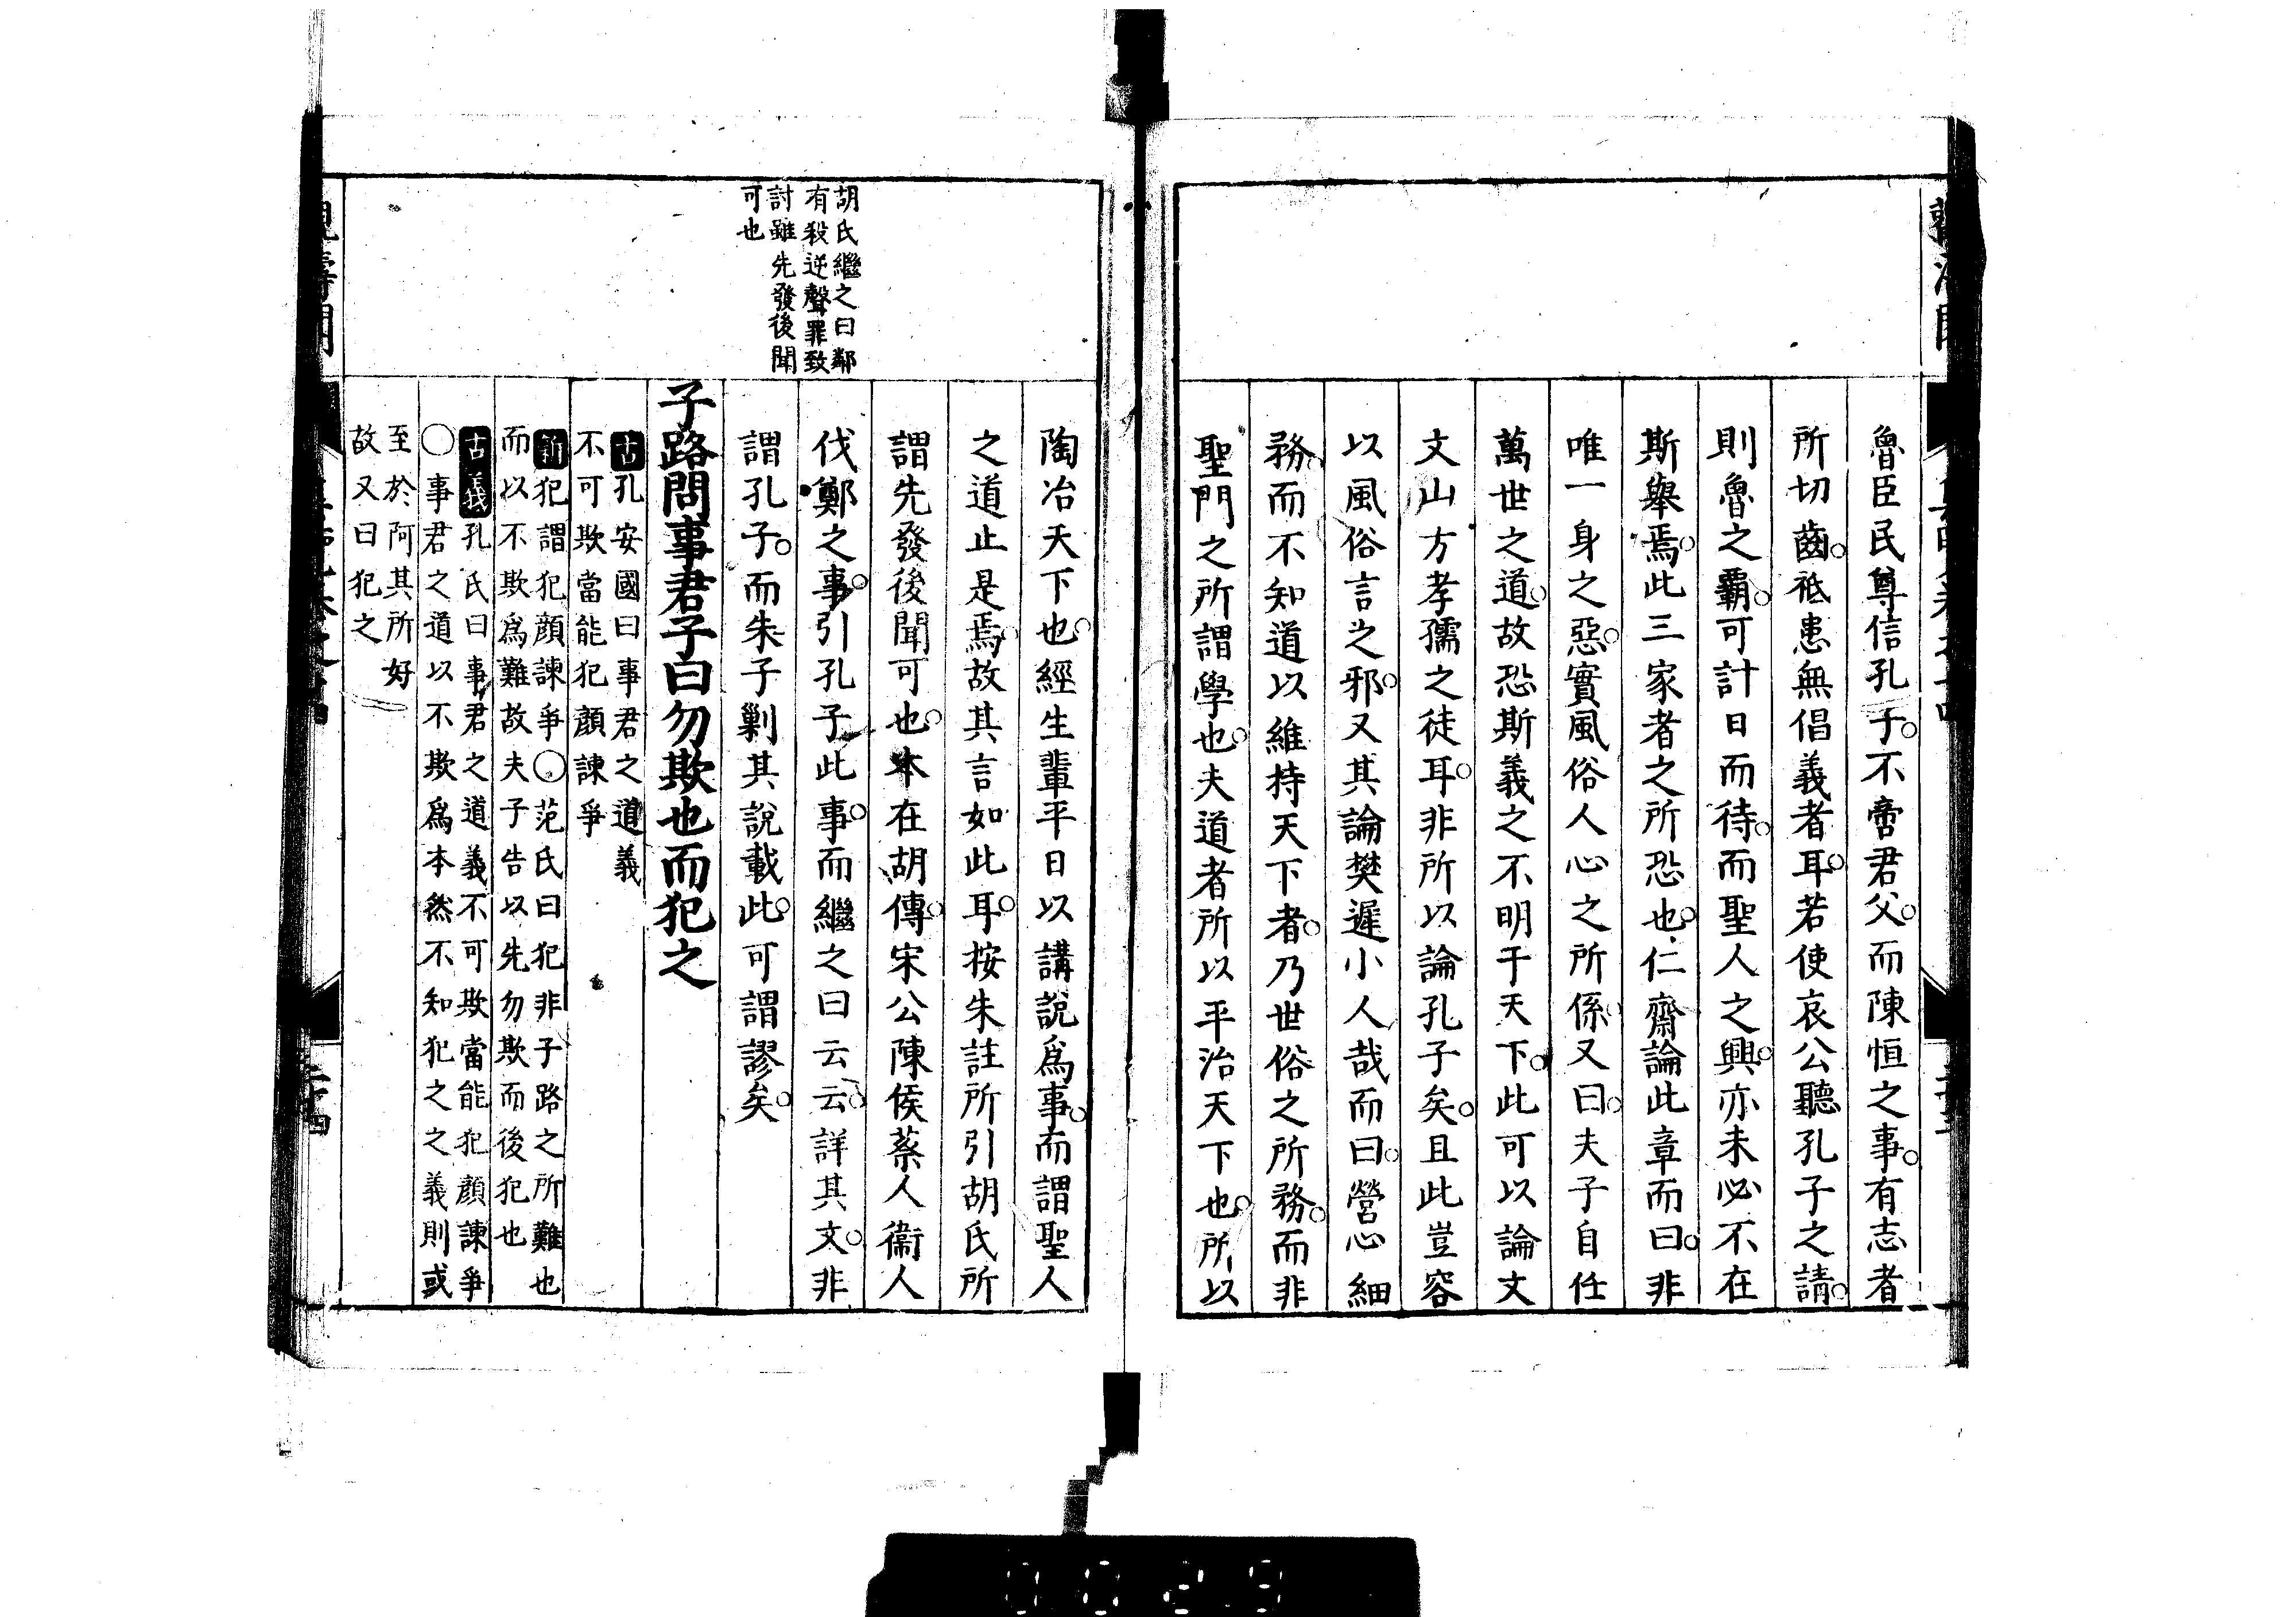 魯臣民尊信孔子。不啻君父。而陳恒之事。有志者
所切齒。祗患無倡義者耳。若使哀公聽孔子之請。
則魯之霸。可計日而待。而聖人之興。亦未必不在
斯舉焉。此三家者之所恐也。仁齋論此章而曰。非
唯一身之惡。實風俗人心之所係。又曰。夫子自任
萬世之道。故恐斯義之不明于天下。此可以論文
文山方孝孺之徒耳。非所以論孔子矣。且此豈容
以風俗言之邪。又其論樊遲小人哉而曰。營心細
務。而不知道以維持天下者。乃世俗之所務。而非
聖門之所謂學也。夫道者所以平治天下也。所以
陶冶天下也。經生輩平日以講說爲事。而謂聖人
之道止是焉。故其言如此耳。按朱註所引胡氏所
謂先發後聞可也。本在胡傳。宋公陳侯蔡人衞人
伐鄭之事。引孔子此事。而繼之曰云云。詳其文。非
謂孔子。而朱子剿其說載此。可謂謬矣。
胡氏繼之曰鄰
有殺逆聲罪致
討雖先發後聞
可也
子路問事君子曰勿欺也而犯之
古孔安國曰事君之道義
不可欺當能犯顏諫爭
新犯謂犯顏諫爭○范氏曰犯非子路之所難也
而以不欺爲難故夫子告以先勿欺而後犯也
古義孔氏曰事君之道義不可欺當能犯顏諫爭
○事君之道以不欺爲本然不知犯之之義則或
至於阿其所好
故又曰犯之